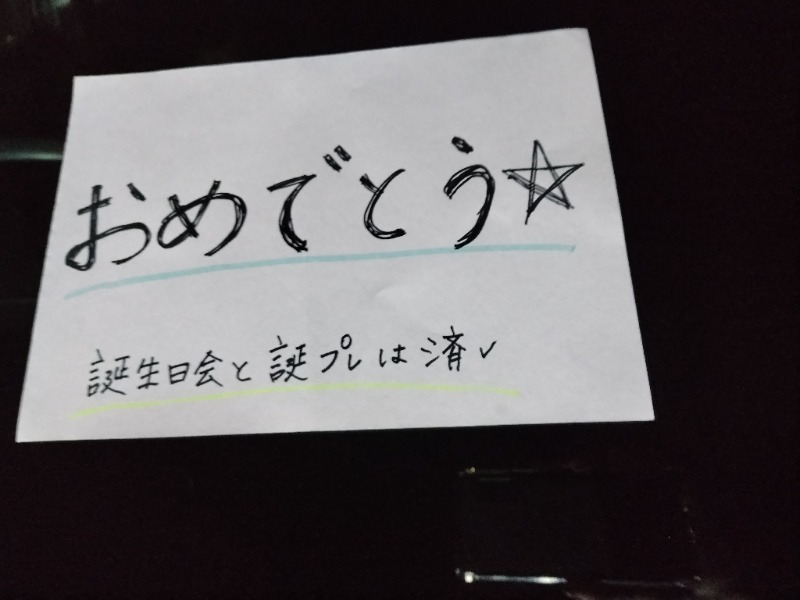 おめでとう☆
誕生日会と誕プレは済✓